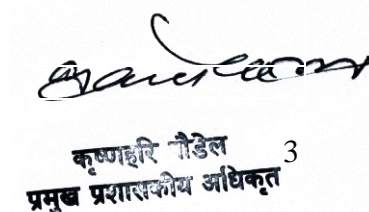 कृष्णहरि पौडेल
3
प्रमुख प्रशासकीय अधिकृत